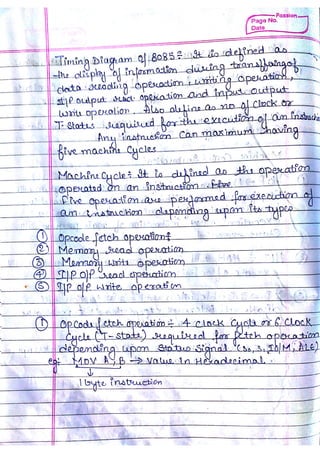 Passion
Page No.
Date
Timing Diagram of 8085 : It is defined as
the display of information during transfring of
data reading operation, writing operation,
I/P output read operation and input output
write operation. Also define as no of clock or
T-States required for the execution of an instruction
Any instruction can maximum having
five machine cycles
Machine Cycle : It is defined as the operation
operated on an instruction.
Five operation are performed for execution of
an instruction depending upon its types
① Opcode fetch operation :
② Memory read operation
③ Memory write operation
④ I/P O/P read operation
⑤ I/P O/P write operation
① Opcode fetch operation ÷ 4 clock cycle or 6 clock
cycle (T-state) required for fetch operation
depending upon status signal (S0, S1 IO/M, ALE)
eg: MOV A, B → Value in Hexadecimal.
↓
1 byte instruction